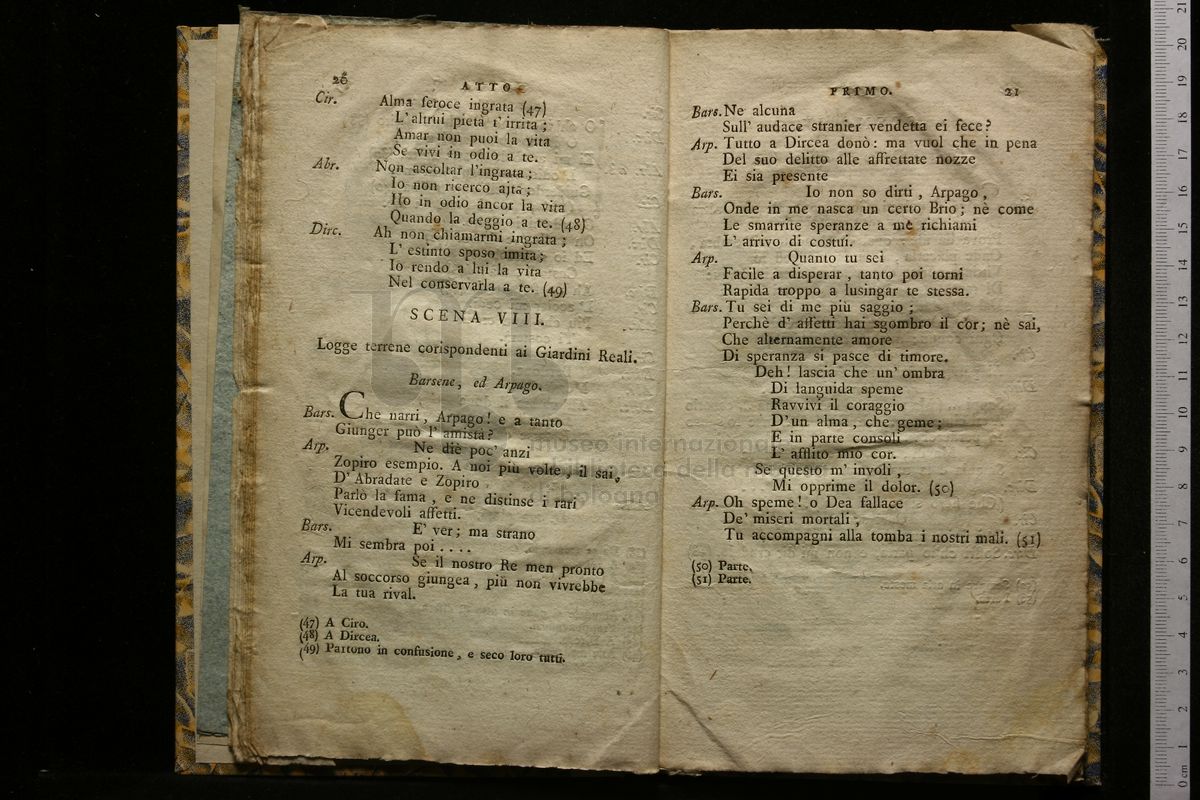 20
ATTO
Cir. Alma feroce ingrata (47)
L'altrui pietà t'irrita;
Amar non puoi la vita
Se vivi in odio a te.
Abr. Non ascoltar l'ingrata;
Io non ricerco ajta;
Ho in odio ancor la vita
Quando la deggio a te. (48)
Dirc. Ah non chiamarmi ingrata;
L'estinto sposo imita;
Io rendo a lui la vita
Nel conservarla a te. (49)
SCENA VIII.
Logge terrene corispondenti ai Giardini Reali.
Barsene, ed Arpago.
Bars. Che narri, Arpago! e a tanto
Giunger può l'amistà?
Arp. Ne diè poc' anzi
Zopiro esempio. A noi più volte, il sai,
D'Abradate e Zopiro
Parlò la fama, e ne distinse i rari
Vicendevoli affetti.
Bars. E' ver; ma strano
Mi sembra poi....
Arp. Se il nostro Re men pronto
Al soccorso giungea, più non vivrebbe
La tua rival.
(47) A Ciro.
(48) A Dircea.
(49) Partono in confusione, e seco loro tutti.
PRIMO. 21
Bars. Ne alcuna
Sull' audace stranier vendetta ei fece?
Arp. Tutto a Dircea donò: ma vuol che in pena
Del suo delitto alle affrettate nozze
Ei sia presente
Bars. Io non so dirti, Arpago,
Onde in me nasca un certo Brio; nè come
Le smarrite speranze a me richiami
L'arrivo di costui.
Arp. Quanto tu sei
Facile a disperar, tanto poi torni
Rapida troppo a lusingar te stessa.
Bars. Tu sei di me più saggio;
Perchè d'affetti hai sgombro il cor; nè sai,
Che alternamente amore
Di speranza si pasce di timore.
Deh! lascia che un' ombra
Di languida speme
Ravvivi il coraggio
D'un alma, che geme;
E in parte consoli
L'afflito mio cor.
Se questo m'involi,
Mi opprime il dolor. (50)
Arp. Oh speme! o Dea fallace
De' miseri mortali,
Tu accompagni alla tomba i nostri mali. (51)
(50) Parte.
(51) Parte.